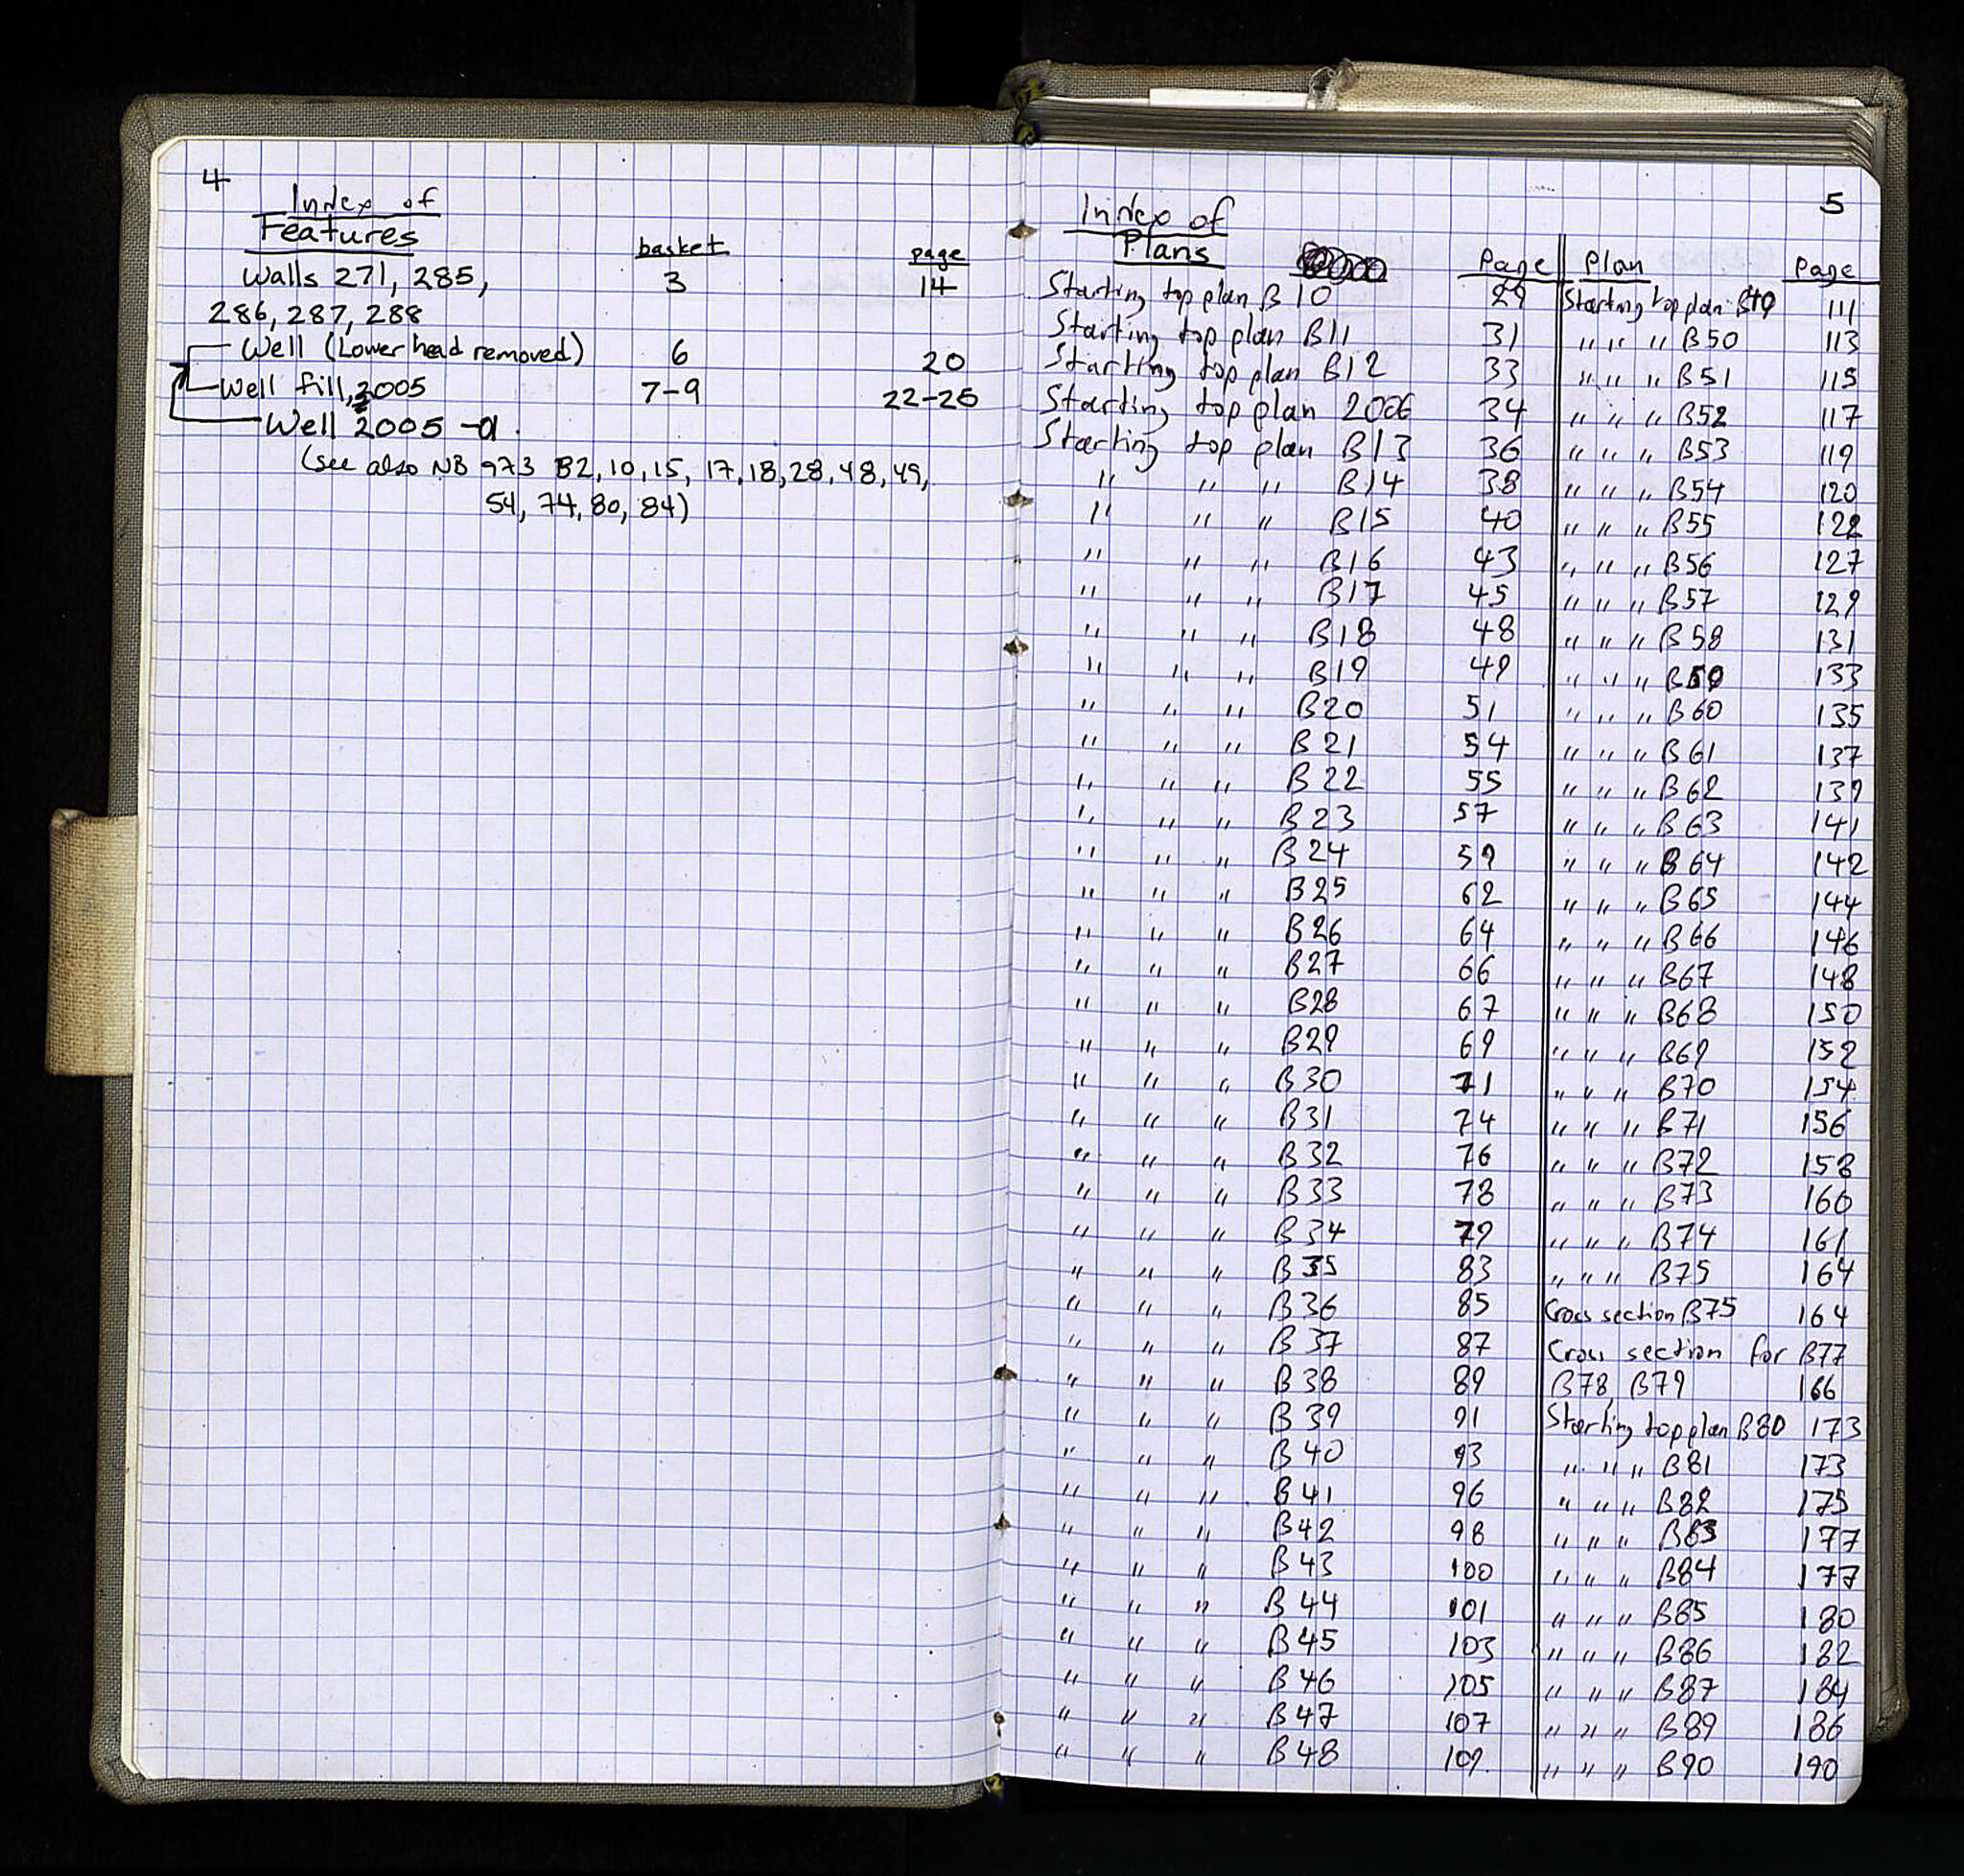 4
Index of
Features basket page
Walls 271, 285, 3 14
286, 287, 288
Well (Lower head removed) 6 20
Well fill, 2005 7-9 22-26
Well 2005-01.
(see also NB 973 B2, 10, 15, 17, 18, 28, 48, 49,
54, 74, 80, 84)
5
Index of
Plans Page
Starting top plan B10 29
Starting top plan B11 31
Starting top plan B12 33
Starting top plan 2006 34
Starting top plan B13 36
" " " B14 38
" " " B15 40
" " " B16 43
" " " B17 45
" " " B18 48
" " " B19 49
" " " B20 51
" " " B21 54
" " " B22 55
" " " B23 57
" " " B24 59
" " " B25 62
" " " B26 64
" " " B27 66
" " " B28 67
" " " B29 69
" " " B30 71
" " " B31 74
" " " B32 76
" " " B33 78
" " " B34 79
" " " B35 83
" " " B36 85
" " " B37 87
" " " B38 89
" " " B39 91
" " " B40 93
" " " B41 96
" " " B42 98
" " " B43 100
" " " B44 101
" " " B45 103
" " " B46 105
" " " B47 107
" " " B48 109.
Plan Page
Starting top plan B49 111
" " " B50 113
" " " B51 115
" " " B52 117
" " " B53 119
" " " B54 120
" " " B55 122
" " " B56 127
" " " B57 129
" " " B58 131
" " " B59 133
" " " B60 135
" " " B61 137
" " " B62 139
" " " B63 141
" " " B64 142
" " " B65 144
" " " B66 146
" " " B67 148
" " " B68 150
" " " B69 152
" " " B70 154
" " " B71 156
" " " B72 158
" " " B73 160
" " " B74 161
" " " B75 164
Cross section B75 164
Cross section for B77
B78, B79 166
Starting top plan B80 173
" " " B81 173
" " " B82 175
" " " B83 177
" " " B84 177
" " " B85 180
" " " B86 182
" " " B87 184
" " " B89 186
" " " B90 190